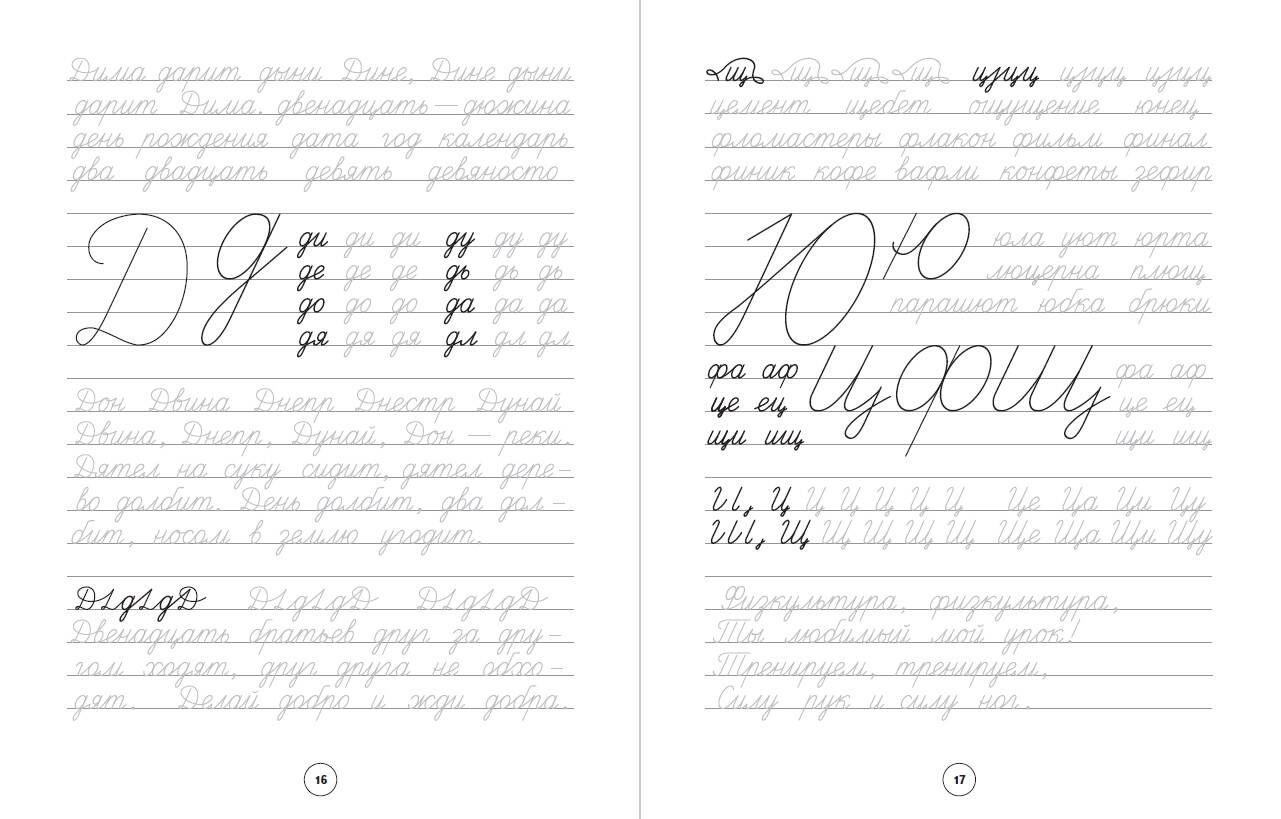 Дима дарит дыни Дине, Дине дыни
дарит Дима. двенадцать — дюжина
день рождения дата год календарь
два двадцать девять девяносто
Д д
ди ди ди ду ду ду
де де де дь дь дь
до до до да да да
дя дя дя дл дл дл
Дон Двина Днепр Днестр Дунай
Двина, Днепр, Дунай, Дон — реки.
Дятел на суку сидит, дятел дере–
во долбит. День долбит, два дол–
бит, носом в землю угодит.
Двенадцать братьев друг за дру–
гом ходят, друг друга не обхо–
дят. Делай добро и жди добра.
16
цемент щебет ощущение юнец
фломастеры флакон фильм финал
финик кофе вафли конфеты зефир
Ю ю
юла уют юрта
люцерна плющ
парашют юбка брюки
фа аф
це ец
щи ищ
Ц Ф Щ
фа аф
це ец
щи ищ
Ц Ц Ц Ц Ц Ц Це Ца Ци Цу
Щ Щ Щ Щ Щ Ще Ща Щи Щу
Физкультура, физкультура,
Ты любимый мой урок!
Тренируем, тренируем,
Силу рук и силу ног.
17